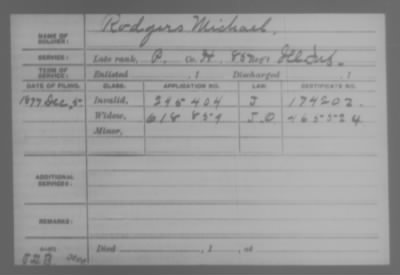 NAME OF SOLDIER: Rodgers Michael.
SERVICE: Late rank, P. Co. H, 85 Reg't Ill Inf.
TERM OF SERVICE: Enlisted , 1 Discharged , 1
DATE OF FILING. CLASS. APPLICATION NO. LAW. CERTIFICATE NO.
1877 Dec, 5. Invalid, 245 404 J 174202.
Widow, 618 859 J.O. 465524
Minor,
ADDITIONAL SERVICES:
REMARKS:
Died , 1 , at